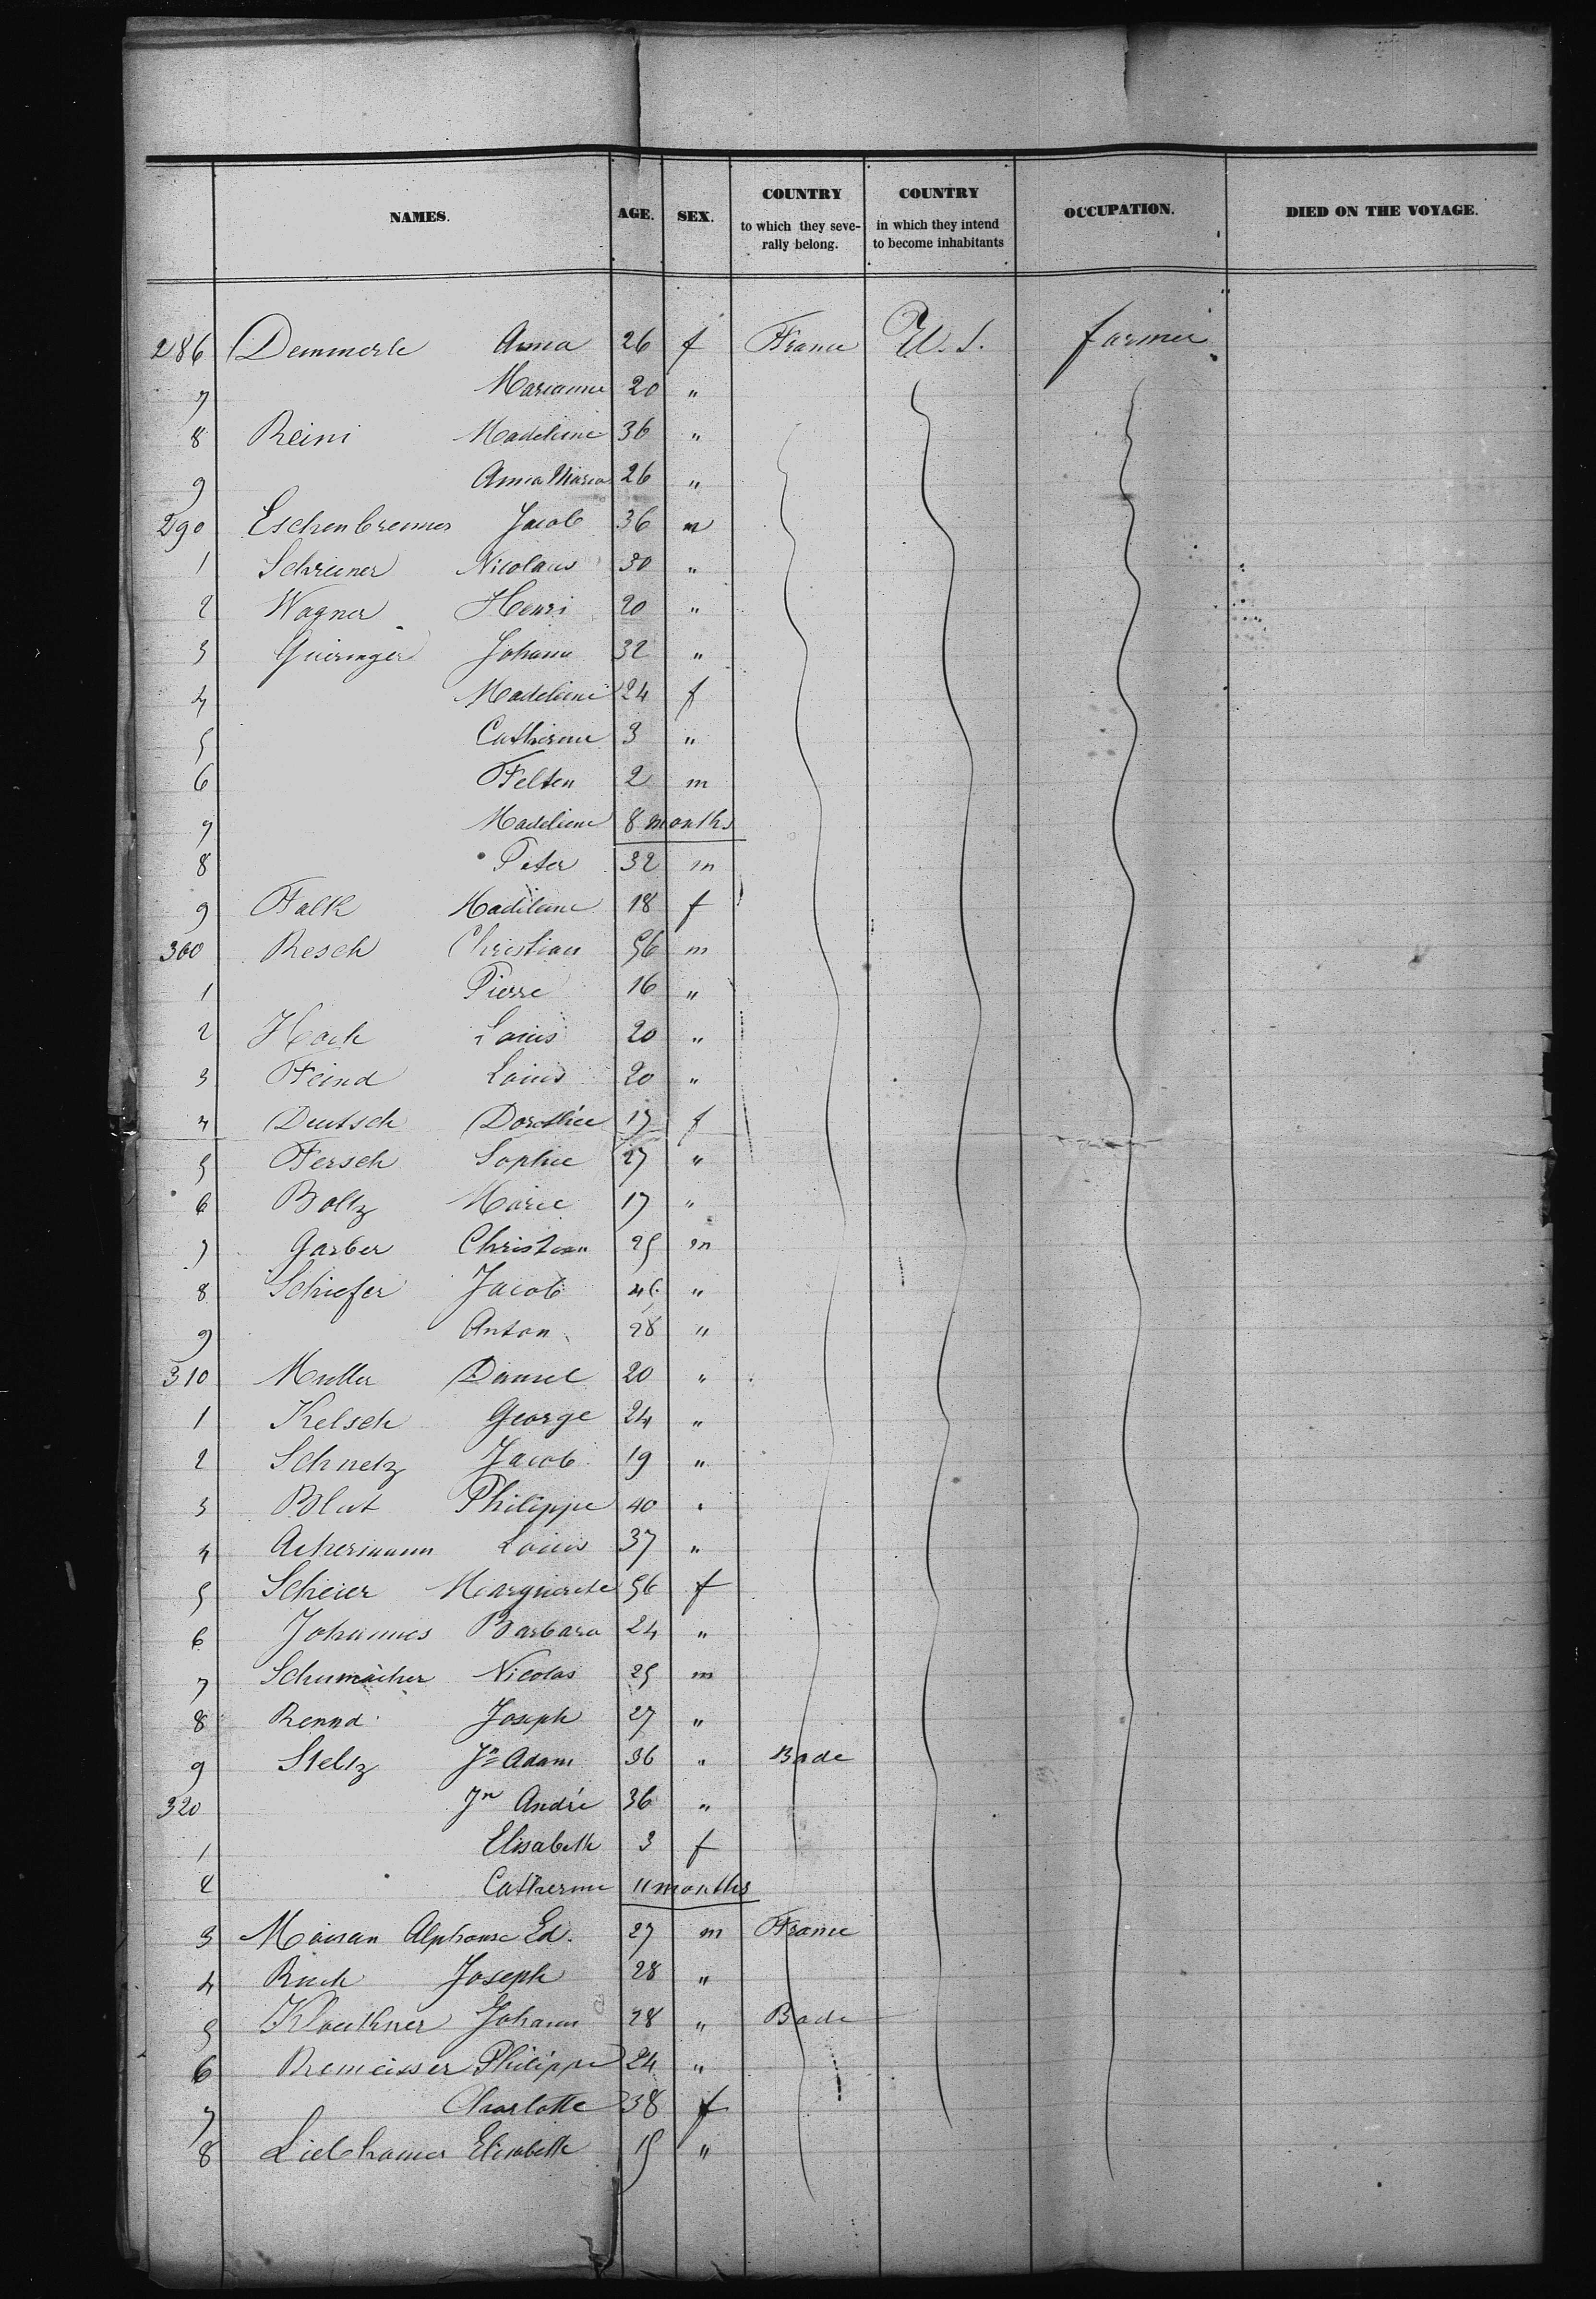 NAMES. AGE. SEX. COUNTRY to which they seve- rally belong. COUNTRY in which they intend to become inhabitants OCCUPATION. DIED ON THE VOYAGE.
286 Demmerle Anna 26 f France U. S. farmer
7 Marianne 20 "
8 Reini Madeleine 36 "
9 Anna Maria 26 "
290 Eschenbrenner Jacob 36 m
1 Schreiner Nicolaus 30 "
2 Wagner Henri 20 "
3 Gueringer Johann 32 "
4 Madeleine 24 f
5 Catherine 3 "
6 Felten 2 m
7 Madeleine 8 months
8 Peter 32 m
9 Falk Madeleine 18 f
300 Resch Christian 56 m
1 Pierre 16 "
2 Hoch Louis 20 "
3 Feind Louis 20 "
4 Deutsch Dorothée 17 f
5 Fersch Sophie 27 "
6 Boltz Marie 17 "
7 Garber Christian 25 m
8 Schiefer Jacob "
9 Anton 28 "
310 Muller Daniel 20 "
1 Kelsch George 24 "
2 Schnetz Jacob 19 "
3 Blut Philippe 40 "
4 Ackermann Louis 37 "
5 Scheier Marguerite 56 f
6 Johannes Barbara 24 "
7 Schumacher Nicolas 25 m
8 Rennd Joseph 27 "
9 Steltz Jn Adam 36 " Bade
320 Jn André 36 "
1 Elisabeth 3 f
2 Catherine 11 months
3 Moisan Alphonse Ed. 27 m France
4 Ruch Joseph 28 "
5 Klouckner Johann 28 " Bade
6 Remeisser Philippe 24 "
7 Charlotte 38 f
8 Elisabeth 15 "